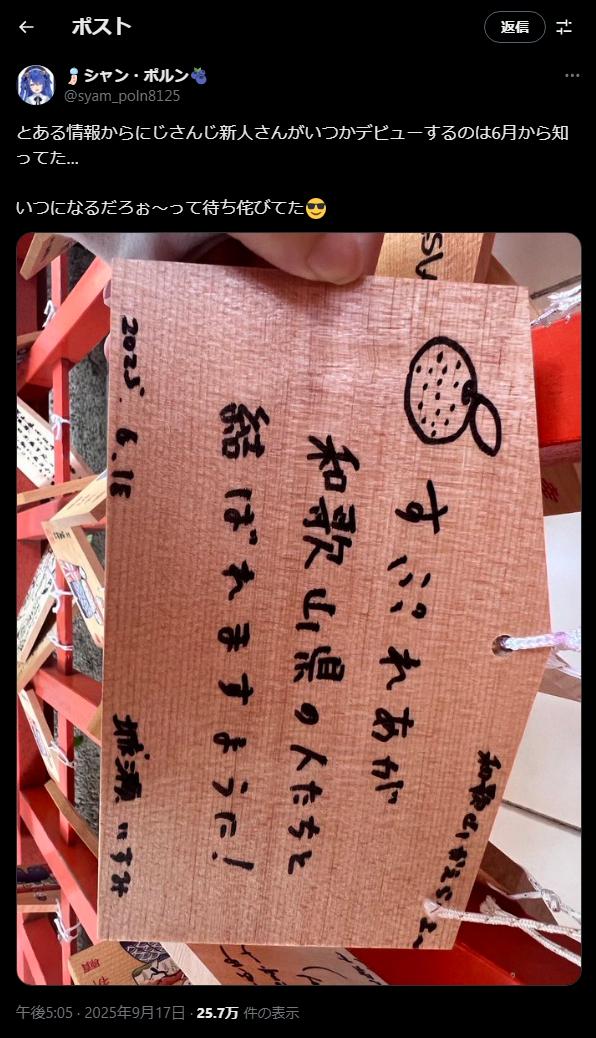 ポスト
返信
シャン・ポルン
@syam_poln8125
とある情報からにじさんじ新人さんがいつかデビューするのは6月から知
ってた...
いつになるだろぉ～って待ち侘びてた😎
和歌山
すぷれあが
和歌山県の人たちと
結ばれますように!
2025. 6.18
城瀬いすみ
午後5:05 · 2025年9月17日 · 25.7万 件の表示